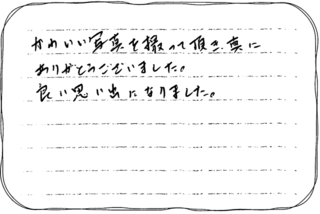 かわいい写真を撮って頂き、真に
ありがとうございました。
良い思い出になりました。